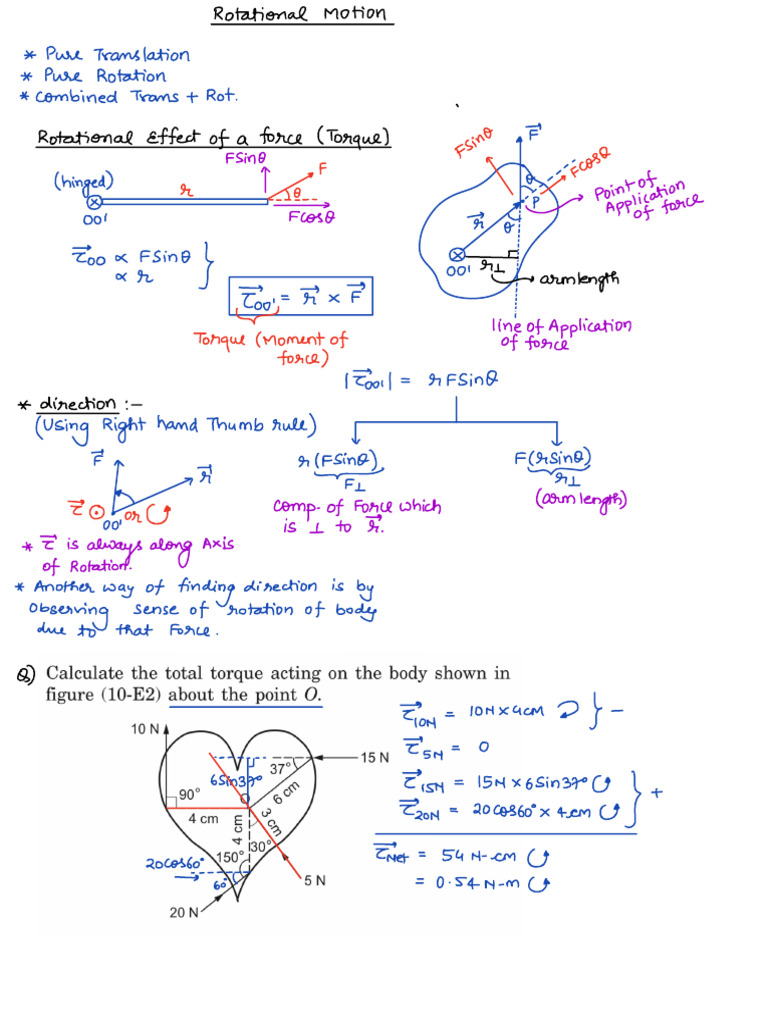 Rotational Motion
* Pure Translation
* Pure Rotation
* Combined Trans + Rot.
Rotational Effect of a force (Torque)
(hinged)
FSinθ
F
r
θ
Fcosθ
OO'
FSinθ
F⃗
FcosQ
θ
P
r⃗
θ
OO'
r⊥
Point of
Application
of force
arm length
line of Application
of force
τ⃗oo ∝ FSinθ
∝ r
τ⃗oo' = r⃗ × F⃗
Torque (Moment of
force)
|τ⃗oo'| = r FSinθ
r (FSinθ)
F⊥
Comp. of Force which
is ⊥ to r⃗.
F(rSinθ)
r⊥
(arm length)
* direction :-
(Using Right hand Thumb rule)
F⃗
r⃗
τ⃗ ⊙ or ↺
OO'
* τ⃗ is always along Axis
of Rotation.
* Another way of finding direction is by
observing sense of rotation of body
due to that Force.
Q) Calculate the total torque acting on the body shown in
figure (10-E2) about the point O.
10 N
15 N
37°
6Sin37°
90°
O
6 cm
4 cm
3 cm
4 cm
30°
150°
20cos60°
60°
5 N
20 N
τ⃗10N = 10N×4cm ↻ } −
τ⃗5N = 0
τ⃗15N = 15N×6Sin37° ↺
τ⃗20N = 20cos60° × 4cm ↺ } +
τ⃗Net = 54 N-cm ↺
= 0.54 N-m ↺